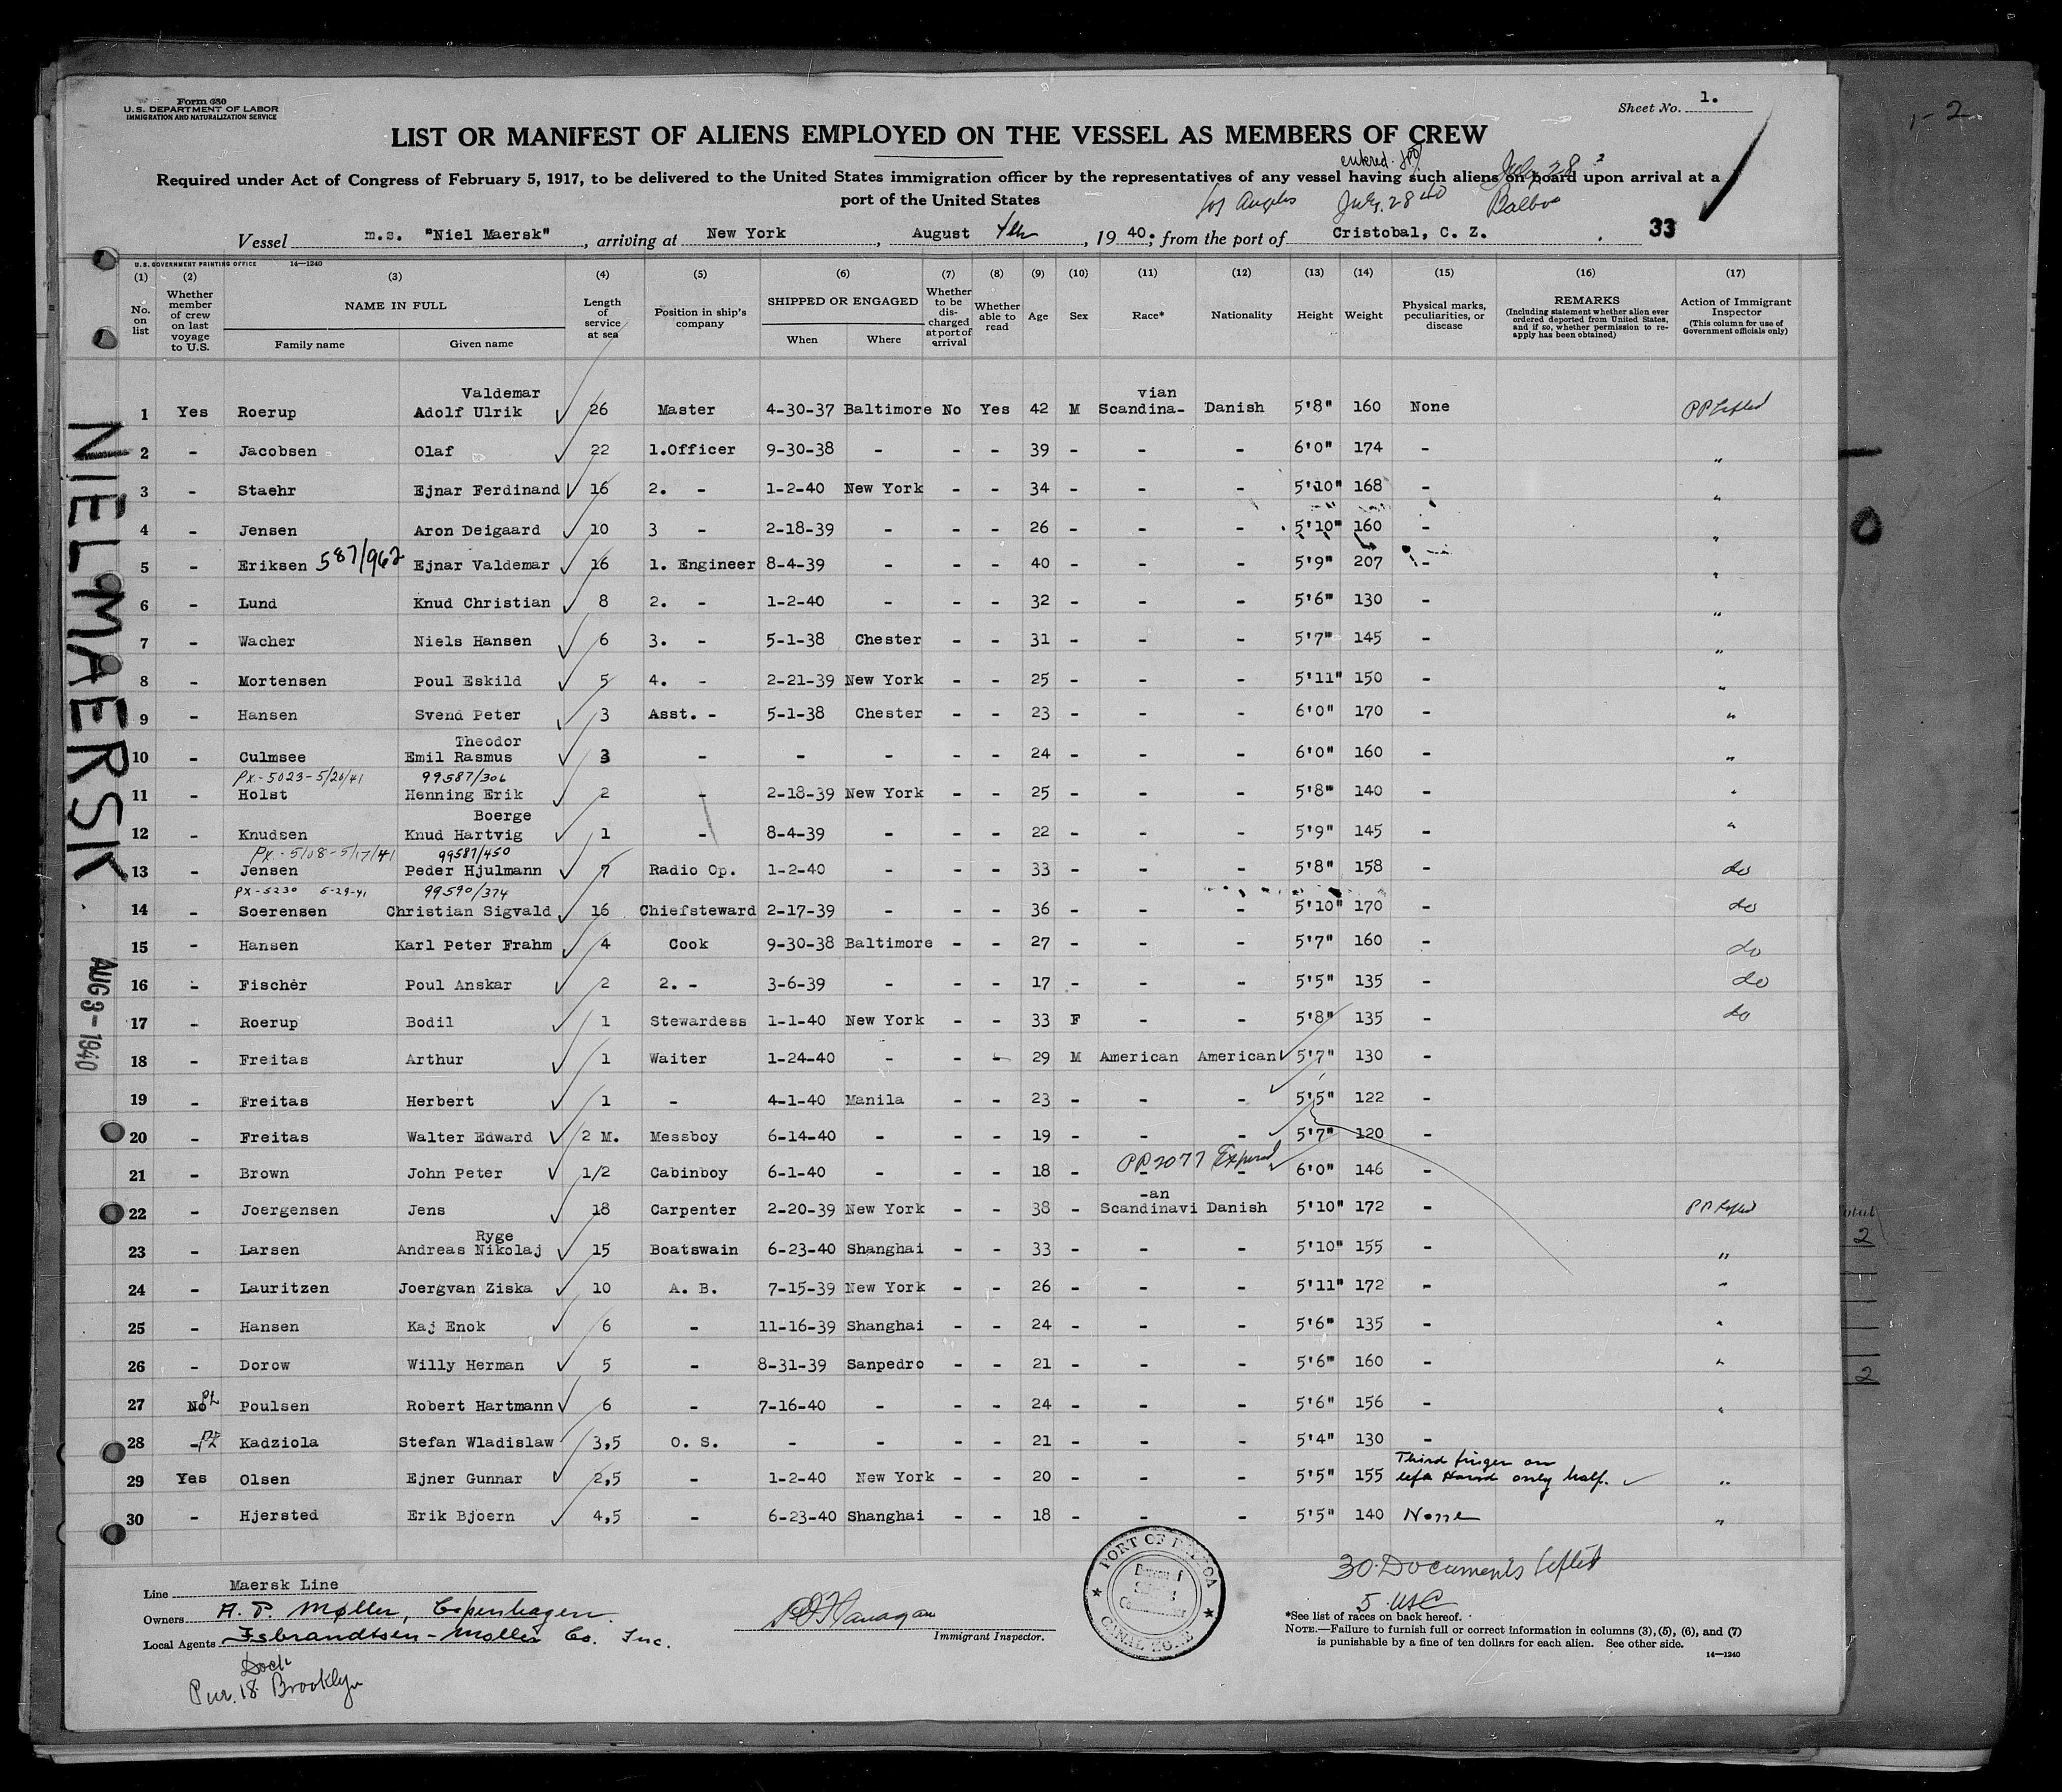 Form 680
U.S. DEPARTMENT OF LABOR
IMMIGRATION AND NATURALIZATION SERVICE
Sheet No. 1.
LIST OR MANIFEST OF ALIENS EMPLOYED ON THE VESSEL AS MEMBERS OF CREW
entered
July 28
Required under Act of Congress of February 5, 1917, to be delivered to the United States immigration officer by the representatives of any vessel having such aliens on board upon arrival at a
port of the United States
Los Angeles July 28 40 Balboa
Vessel m.s. "Niel Maersk", arriving at New York, August 4th, 1940; from the port of Cristobal, C. Z. 33
U.S. GOVERNMENT PRINTING OFFICE 14—1240
(1) (2) (3) (4) (5) (6) (7) (8) (9) (10) (11) (12) (13) (14) (15) (16) (17)
No. on list
Whether member of crew on last voyage to U.S.
NAME IN FULL
Family name
Given name
Length of service at sea
Position in ship's company
SHIPPED OR ENGAGED
When
Where
Whether to be discharged at port of arrival
Whether able to read
Age
Sex
Race*
Nationality
Height
Weight
Physical marks, peculiarities, or disease
REMARKS
(Including statement whether alien ever ordered deported from United States, and if so, whether permission to reapply has been obtained)
Action of Immigrant Inspector
(This column for use of Government officials only)
Valdemar vian
1 Yes Roerup Adolf Ulrik 26 Master 4-30-37 Baltimore No Yes 42 M Scandina- Danish 5'8" 160 None PP Lifted
2 - Jacobsen Olaf 22 1.Officer 9-30-38 - - - 39 - - - 6'0" 174 - "
3 - Staehr Ejnar Ferdinand 16 2. - 1-2-40 New York - - 34 - - - 5'10" 168 - "
4 - Jensen Aron Deigaard 10 3 - 2-18-39 - - - 26 - - - 5'10" 160 - "
5 - Eriksen 587/962 Ejnar Valdemar 16 1. Engineer 8-4-39 - - - 40 - - - 5'9" 207 - "
6 - Lund Knud Christian 8 2. - 1-2-40 - - - 32 - - - 5'6" 130 - "
7 - Wacher Niels Hansen 6 3. - 5-1-38 Chester - - 31 - - - 5'7" 145 - "
8 - Mortensen Poul Eskild 5 4. - 2-21-39 New York - - 25 - - - 5'11" 150 - "
9 - Hansen Svend Peter 3 Asst. - 5-1-38 Chester - - 23 - - - 6'0" 170 - "
Theodor
10 - Culmsee Emil Rasmus 3 - - - - - 24 - - - 6'0" 160 - "
PX-5023-5/20/41 99587/306
11 - Holst Henning Erik 2 - 2-18-39 New York - - 25 - - - 5'8" 140 - "
Boerge
12 - Knudsen Knud Hartvig 1 - 8-4-39 - - - 22 - - - 5'9" 145 - "
PX.-5108-5/17/41 99587/450
13 - Jensen Peder Hjulmann 7 Radio Op. 1-2-40 - - - 33 - - - 5'8" 158 - do
PX-5230 5-29-41 99590/374
14 - Soerensen Christian Sigvald 16 Chiefsteward 2-17-39 - - - 36 - - - 5'10" 170 - do
15 - Hansen Karl Peter Frahm 4 Cook 9-30-38 Baltimore - - 27 - - - 5'7" 160 - do
16 - Fischer Poul Anskar 2 2. - 3-6-39 - - - 17 - - - 5'5" 135 - do
17 - Roerup Bodil 1 Stewardess 1-1-40 New York - - 33 F - - 5'8" 135 - do
18 - Freitas Arthur 1 Waiter 1-24-40 - - - 29 M American American 5'7" 130 -
19 - Freitas Herbert 1 - 4-1-40 Manila - - 23 - - - 5'5" 122 -
20 - Freitas Walter Edward 2 M. Messboy 6-14-40 - - - 19 - - - 5'7" 120 -
PP 2077 Expired
21 - Brown John Peter 1/2 Cabinboy 6-1-40 - - - 18 - - - 6'0" 146 -
-an
22 - Joergensen Jens 18 Carpenter 2-20-39 New York - - 38 - Scandinavi Danish 5'10" 172 - PP Lifted
Ryge
23 - Larsen Andreas Nikolaj 15 Boatswain 6-23-40 Shanghai - - 33 - - - 5'10" 155 - "
24 - Lauritzen Joergvan Ziska 10 A. B. 7-15-39 New York - - 26 - - - 5'11" 172 - "
25 - Hansen Kaj Enok 6 - 11-16-39 Shanghai - - 24 - - - 5'6" 135 - "
26 - Dorow Willy Herman 5 - 8-31-39 Sanpedro - - 21 - - - 5'6" 160 - "
27 No Poulsen Robert Hartmann 6 - 7-16-40 - - - 24 - - - 5'6" 156 - "
28 - Kadziola Stefan Wladislaw 3,5 O. S. - - - - 21 - - - 5'4" 130 -
Third finger on
29 Yes Olsen Ejner Gunnar 2,5 - 1-2-40 New York - - 20 - - - 5'5" 155 left Hand only half. "
30 - Hjersted Erik Bjoern 4,5 - 6-23-40 Shanghai - - 18 - - - 5'5" 140 None "
NIEL MAERSK
AUG 3-1940
30 Documents lifted
5 USC
Line Maersk Line
Owners A. P. Møller, Copenhagen.
Local Agents Isbrandtsen-Moller Co. Inc.
Dock
Pier 18 Brooklyn
Immigrant Inspector.
PORT OF BALBOA
CANAL ZONE
*See list of races on back hereof.
NOTE.—Failure to furnish full or correct information in columns (3), (5), (6), and (7)
is punishable by a fine of ten dollars for each alien. See other side.
14—1240
1-2
0
2
2